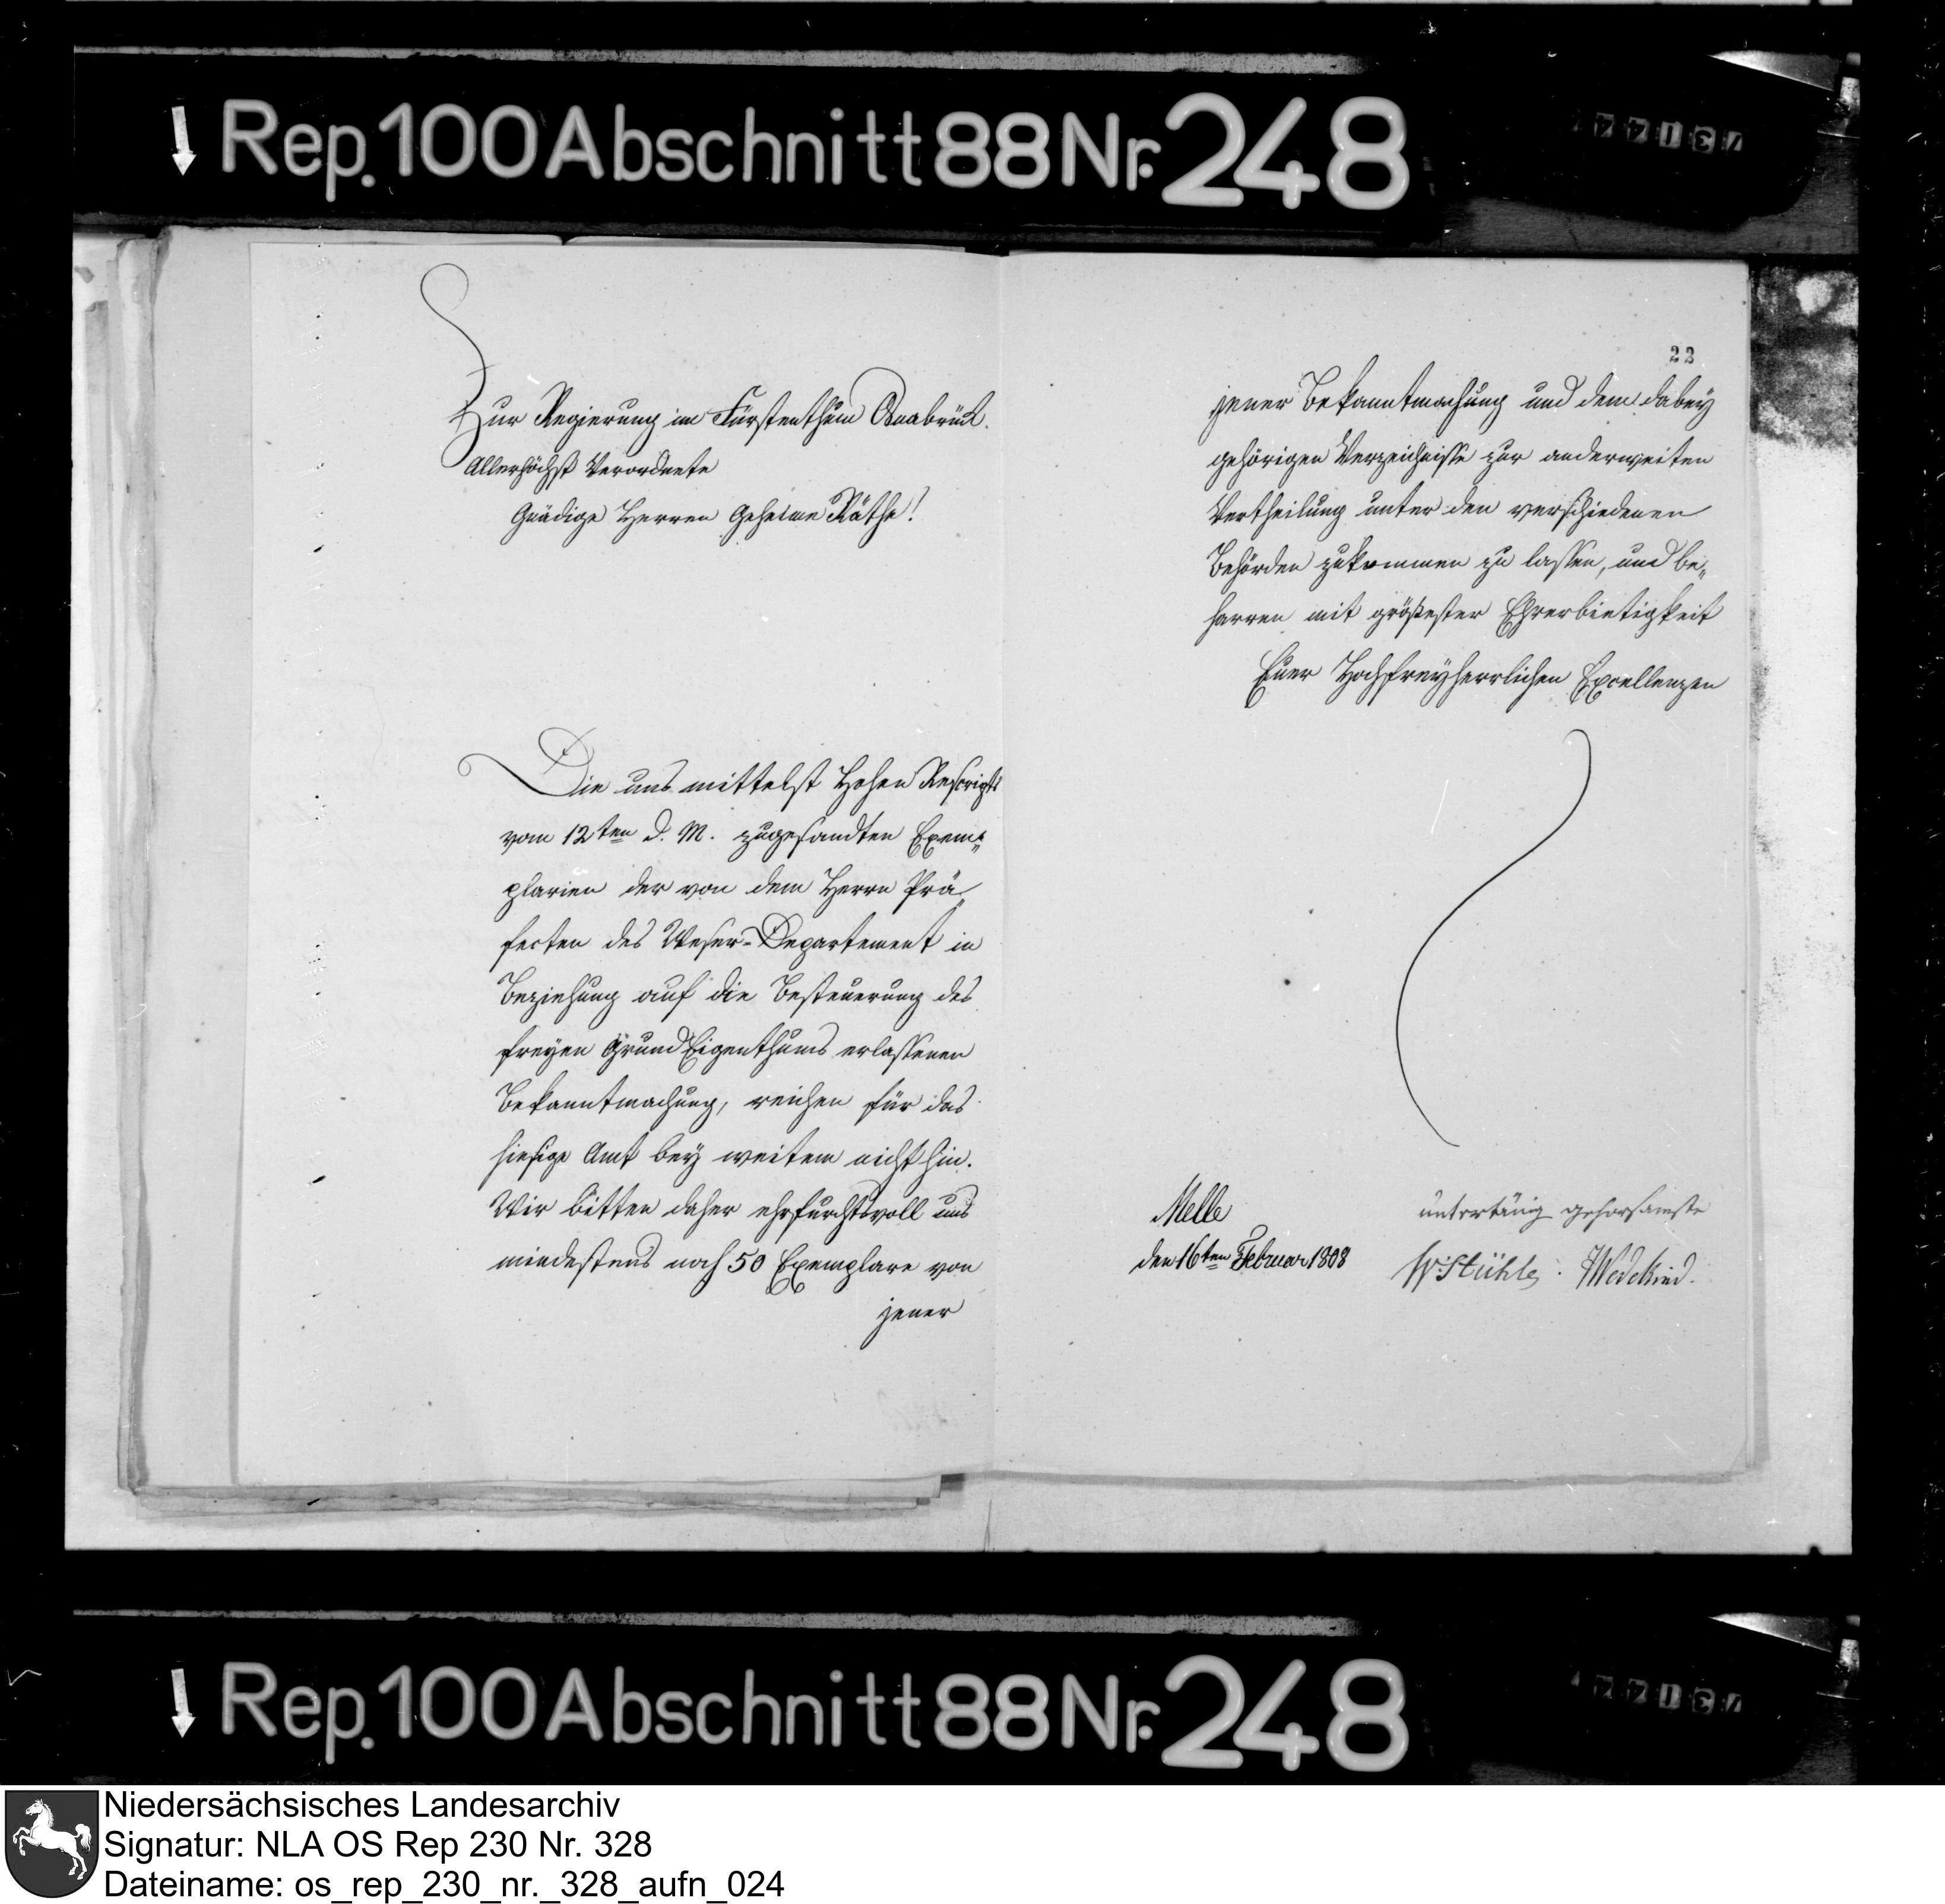 Rep. 100 Abschnitt 88 Nr. 248
Zur Regierung im Fürstenthum Osnabrück.
Allerhöchst Verordnete
Gnädige Herren Geheime Räthe!
Die uns mittelst Hohen Rescripts
vom 12ten d. M. zugesandten Exem„
plarien der von dem Herrn Prä„
fecten des Weser-Departement in
Beziehung auf die Besteuerung des
freyen Grund Eigenthums erlassenen
Bekanntmachung, reichen für das
hiesige Amt bey weitem nicht hin.
Wir bitten daher ehrfurchtsvoll uns
mindestens noch 50 Exemplare von
jener
22
jener Bekanntmachung und dem dabey
gehörigen Verzeichnisse zur anderweiten
Vertheilung unter den verschiedenen
Behörden zukommen zu lassen, und be„
harren mit größester Ehrerbietigkeit
Euer Hochfreyherrlichen Excellenzen
Melle
den 16ten Februar 1808
untertänig gehorsamste
Stühle. Wedekind.
Rep. 100 Abschnitt 88 Nr. 248
Niedersächsisches Landesarchiv
Signatur: NLA OS Rep 230 Nr. 328
Dateiname: os_rep_230_nr._328_aufn_024